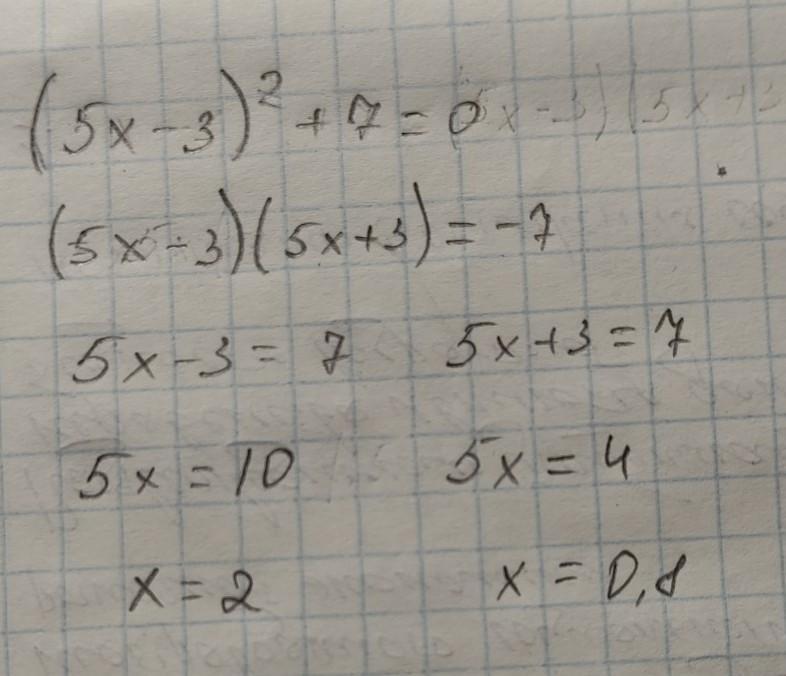 (5x-3)²+7=0
(5x-3)(5x+3)=-7
5x-3=7 5x+3=7
5x=10 5x=4
x=2 x=0,8